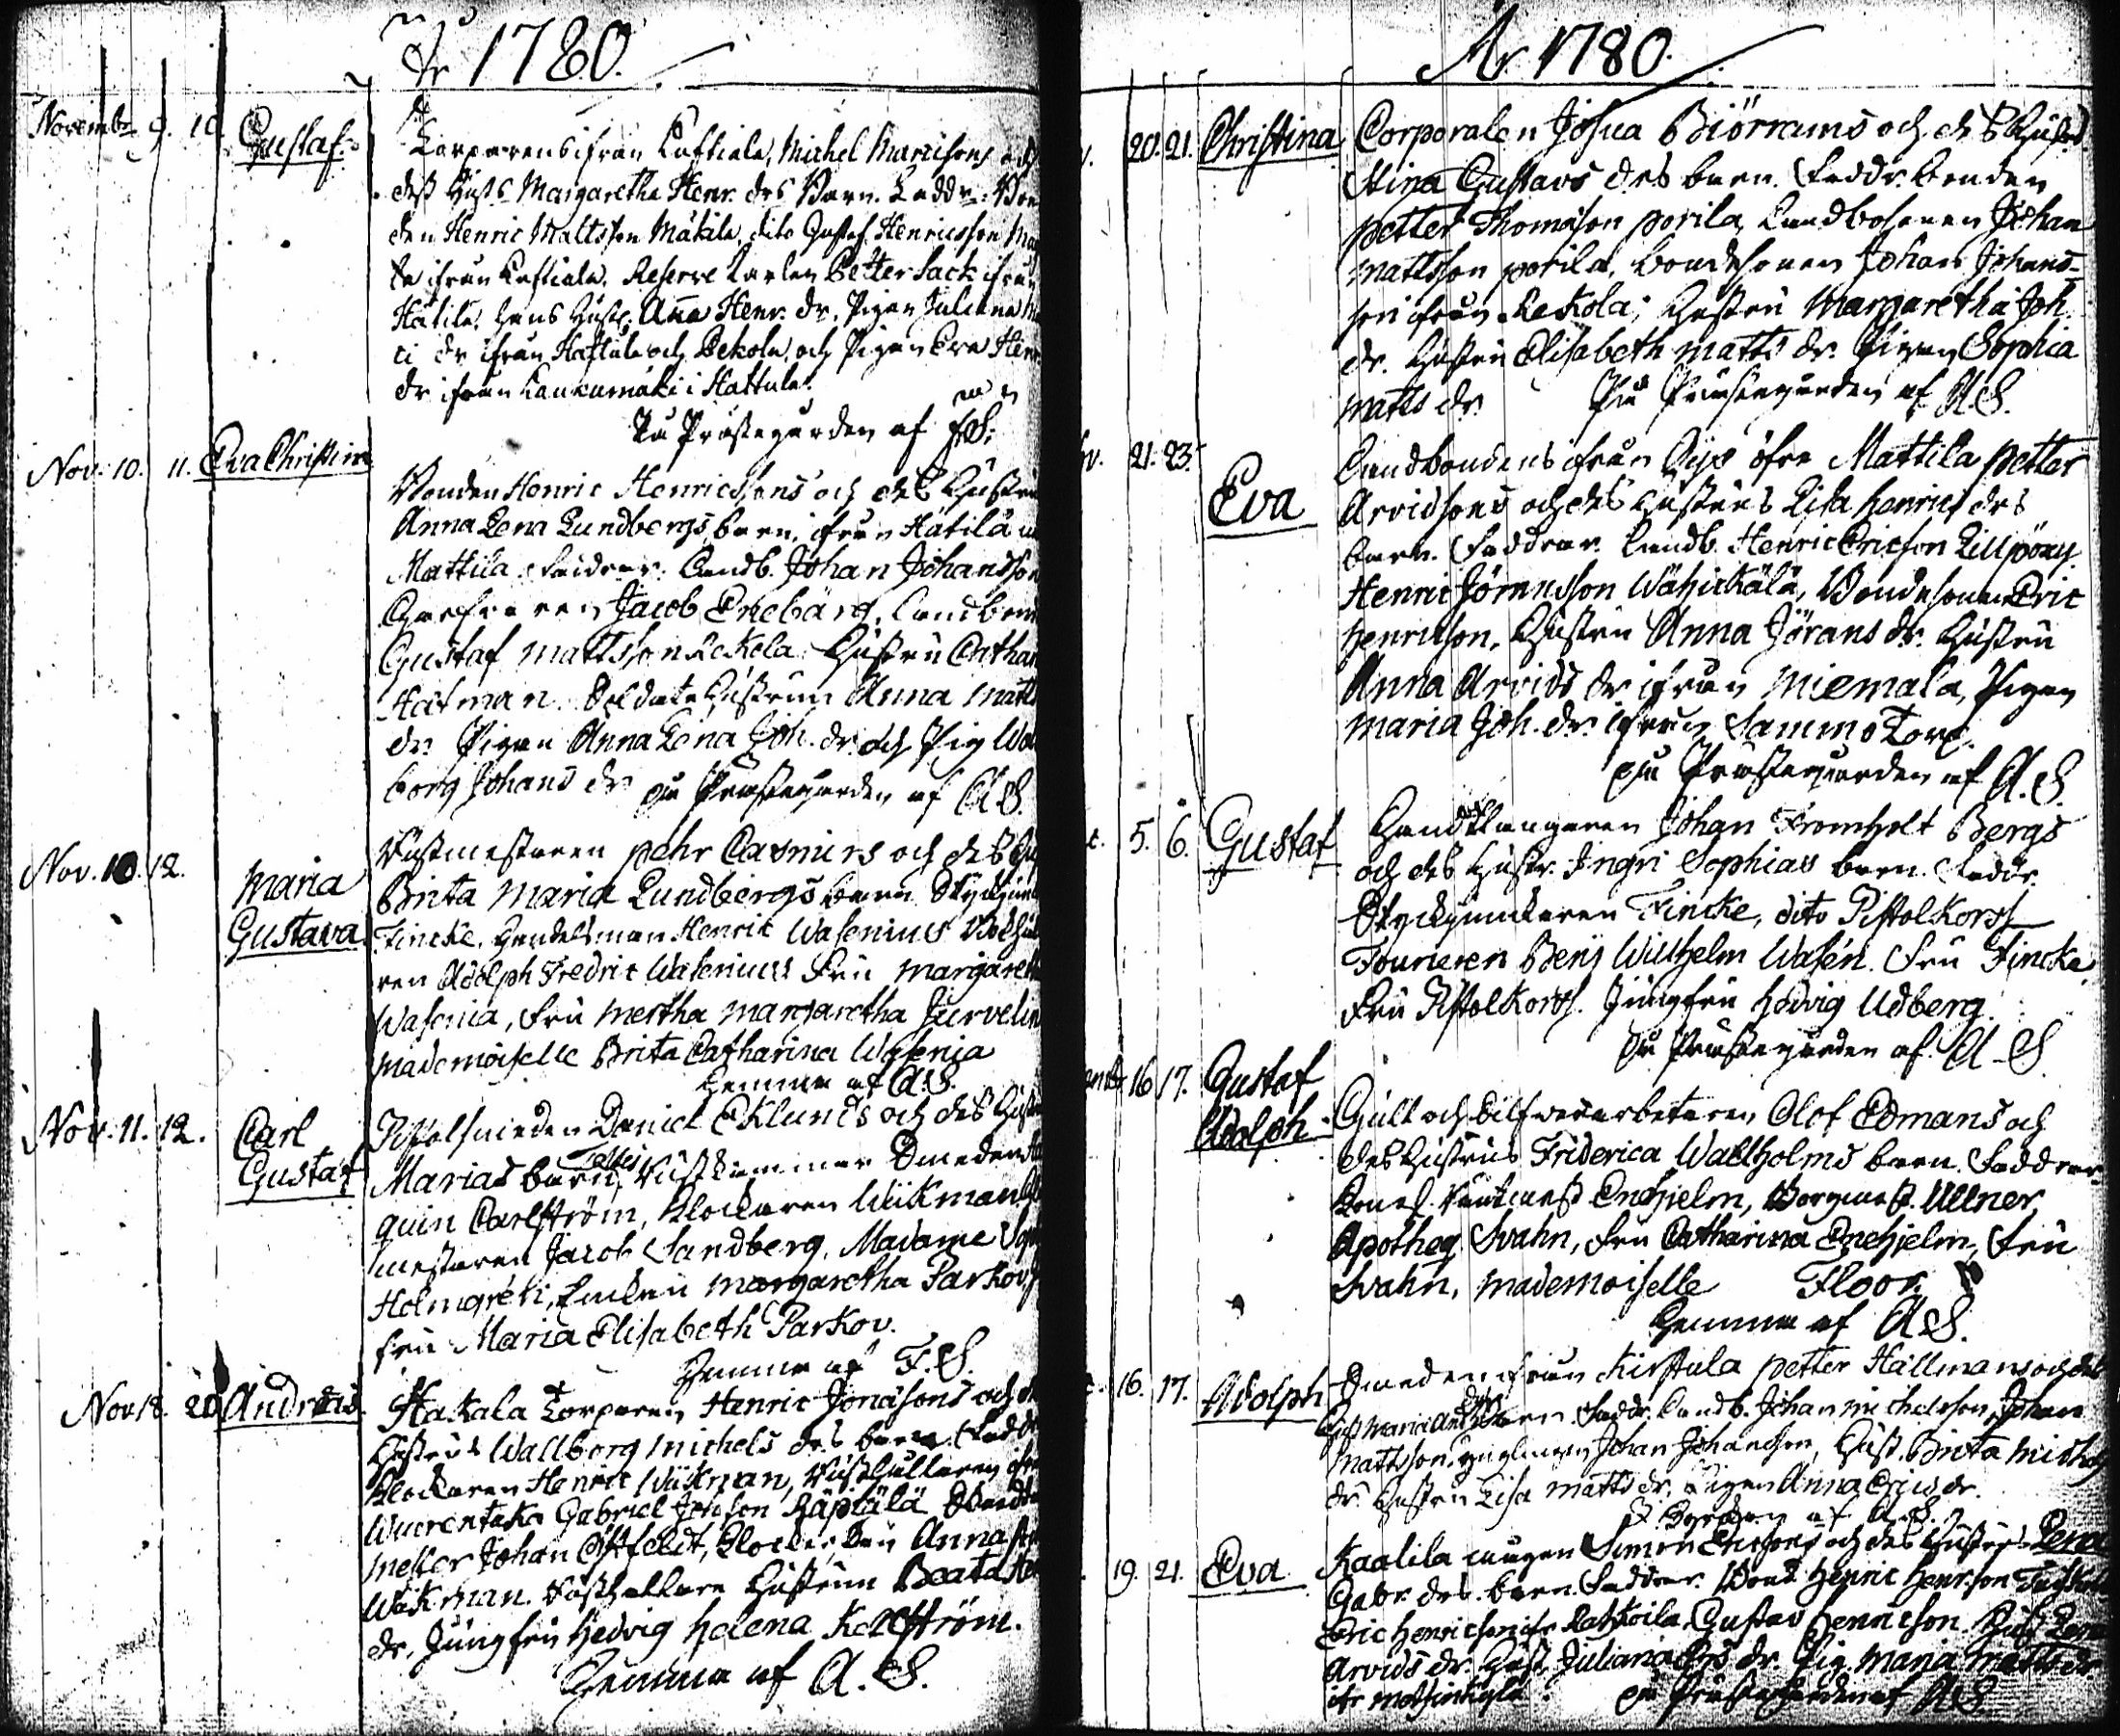 Åhr 1780.
Novembr 9. 10. Gustaf. Torparens ifrån Luftiala, Michel Marcisons och
dess Hust. Margaretha Henr. drs Barn. Faddr. Bon
den Henric Mattsson Mäkilä, dito Gustaf Henricsson
ifrån Luftiala. Reserve Karlen Petter Sack ifrån
Hätilä. Hans Hustr. Anna Henr. dr. Pigan Juliana
dr ifrån Hattula och Pekola, och Pigan Eva Henr
dr ifrån Kankarmäki i Hattula.
På Prästegården af F.S.
Nov. 10. 11. Eva Christina
Bonden Henric Henricssons och des Hustru
Anna Lena Lundbergs barn, ifrån Hätilä
Mattila. Faddrar: Landb. Johan Johansson
Jacob Enebärg, Landbon
Gustaf Mattsson Rekola. Hustru Cathar
Hatman. Soldate Hustrun Anna Matts
dr. Pigan Anna Lena Joh. dr. och Pig Wal
borg Johans dr på Prästegården af A.S.
Nov. 10. 12. Maria Gustava
Rustmestaren Pehr Casmirs och des Hu
Brita Maria Lundbergs barn. Styckjunk
Fincke. Handelsman Henric Wasenius Bokhål
ren Adolph Fredric Wasenius Fru Margareth
Wasenia, Fru Mertha Margaretha Jurvelin
Mademoiselle Brita Catharina Wasenia
Hemma af A.S.
Nov. 11. 12. Carl Gustaf
Pistolsmeden Daniel Eklunds och des Hustru
Marias barn, Rustkammar Smeden
quin Carlström, Klockaren Wiikman
mestaren Jacob Sandberg, Madame
Holmgren, Enkan Margaretha Parkov,
fru Maria Elisabeth Parkov.
Hemma af F.S.
Nov 18. 20 Andreas. Hakala Torparen Henric Jonasons och
Hustrus Wallborg Michels drs barn. Fadd
Klockaren Henric Wiikman, Rusthållaren
Wuorentaka Gabriel Johsson Käpylä
Johan Östfeldt, Klockar Fru Anna
Wiikman. Rusthållare Hustrun Beata
dr, Jungfru Hedvig Helena Kellström.
Hemma af A.S.
Åhr 1780.
20. 21. Christina Corporalen Josua Biörrams och des Hustrus
Stina Gustavs drs barn. Faddr. Bonden
Petter Thomason Porila, Landbosonen Johan
Mattsson Porila, Bondesonen Johan Johans-
son ifrån Rekola; Hustru Margaretha Joh.
dr. Hustru Elisabeth Matts dr. Pigan Sophia
Matts dr. På Prästegården af A.S.
21. 23. Eva
Landbondens ifrån öfre Mattila Petter
Arvidsons och des Hustrus Lisa Henrics drs
barn. Faddrar. Landb. Henric Ericson
Henric Jöransson Wähickälä, Bondesonen Eric
Henricsson, Hustru Anna Jörans dr. Hustru
Anna Arvids dr ifrån Miemala, Pigan
Maria Joh. dr. ifrån samma Torp.
På Prästegården af A.S.
5. 6. Gustaf Handtlangaren Johan Fromholt Bergs
och des Hustr. Ingri Sophias barn. Faddr.
Styckjunkaren Fincke, dito Pistolkors,
Fourieren Benj Willhelm Wasén. Fru Fincke
Fru Pistolkors. Jungfru Hedvig Udberg.
På Prästegården af A.S.
16 17. Gustaf Adolph
Gull och Silfverarbetaren Olof Edmans och
des Hustrus Friderica Wallholms barn. Faddrar
Enehjelm, Borgmest. Ullner,
Apotheq. Svahn, Fru Catharina Enehjelm, Fru
Svahn, Mademoiselle Floor.
Hemma af A.S.
16. 17. Adolph Smeden ifrån Kirstula Petter Hällmans och des
Hust Maria barn Faddr. Landb. Johan Michelsson, Johan
Mattsson, ynglingen Johan Johansson, Hust. Brita Michels
dr. Hustru Lisa Matts dr. Pigan Anna Erics dr.
af A.S.
19. 21. Eva Kaalila Simon Ericsons och des Hustrus Lena
Gabr. drs. barn. Faddrar. Bond. Henric Henr.son
Eric Henricson Gustav Henricson Hust Lena
Arvids dr. Hust Juliana dr. Pig. Maria Matts dr
På Prästegården af A.S.